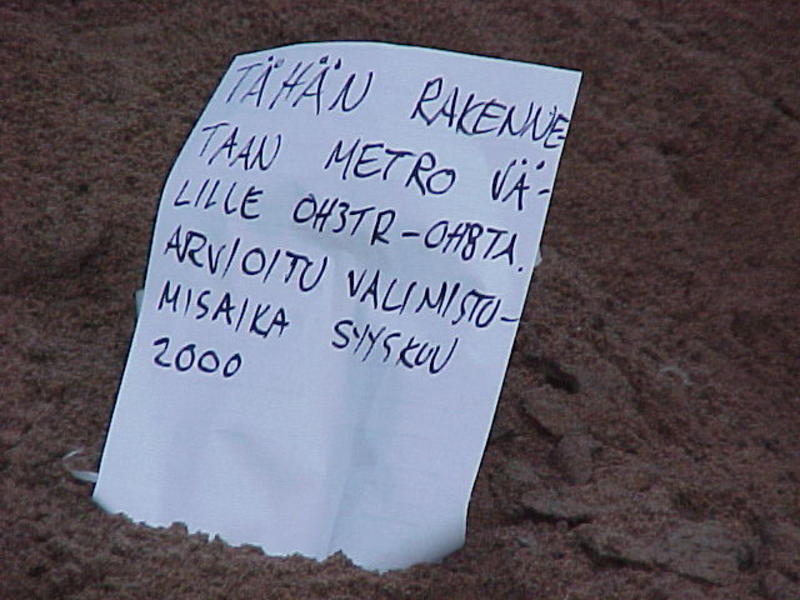 TÄHÄN RAKENNE-
TAAN METRO VÄ-
LILLE OH3TR-OH8TA.
ARVIOITU VALIMISTU-
MISAIKA SYYSKUU
2000